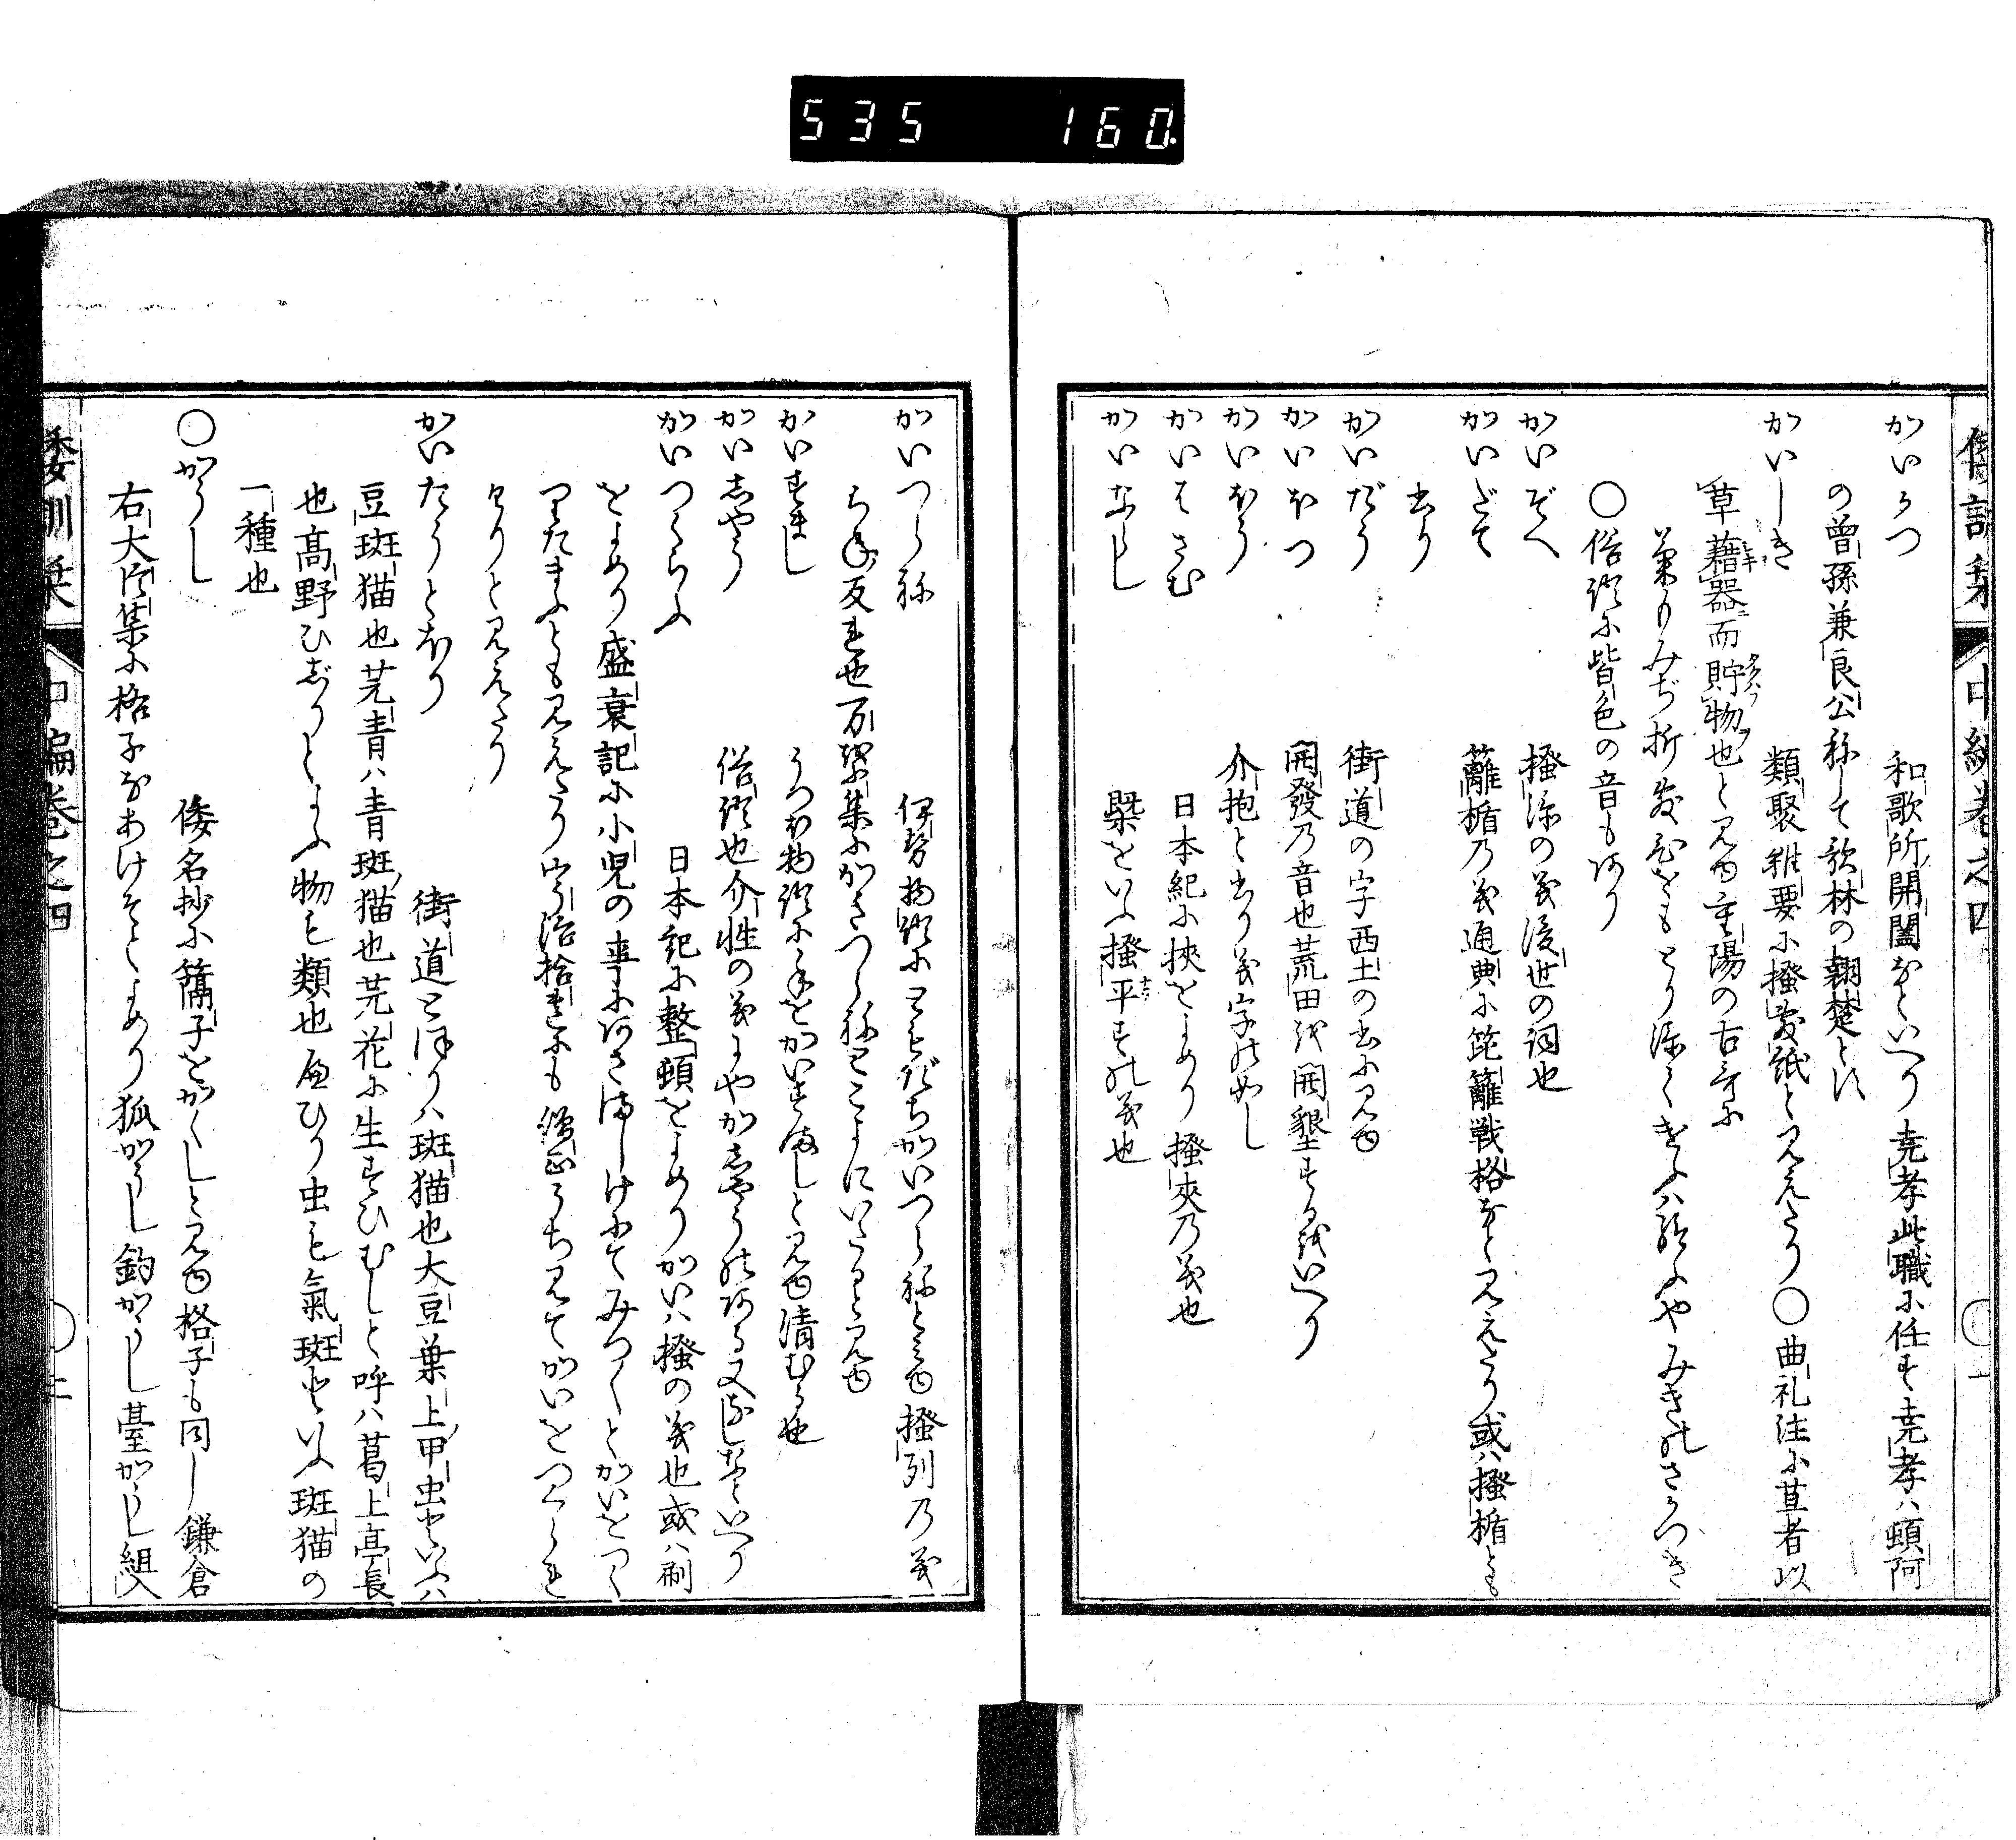 535 160
かいかつ 和歌所開闔なといへり尭孝此職に任す尭孝ハ頓阿
の曽孫兼良公称して歌林の翹楚とす
かいしき 類聚雑要に掻敷紙と見えたり〇曲礼注に苴者以
草藉器而貯物也と見ゆ重陽の古哥に
菊もみぢ折敷
〇俗語に皆色の音もあり
かいぞへ 掻添の義後世の詞也
かいだて 籬楯乃義通典に笓籬戦格なと見えたり或ハ掻楯とも
書り
かいだう 街道の字西土の書に見ゆ
かいほつ 開發乃音也荒田を開墾するをいへり
かいほう 介抱と書り義字の如し
かいはさむ 日本紀に挾をよめり掻夾乃義也
かいならし 槩をいふ掻平すの義也
倭訓栞 中編巻之四 一
かいつらね 伊勢物語にともだちかいつらねとみゆ掻列乃義
ちね反れ也万葉集にかきつらねとこよにいたると見ゆ
かいすまし うつほ物語に手をかいすましと見ゆ清むる也
かいしやう 俗語也介性の義にやかしやうのある又なしなといへり
かいつくらふ 日本記に整頓をよめりかいハ掻の義也或ハ刷
をよめり盛衰記に小児の事にあさましけにてみつくとかいをつく
りたまふとも見えたり宇治拾遺にも僧正うち見てかいをつくられ
けりと見えたり
かいたうとほり 街道とほりハ斑猫也大豆葉上甲虫といふハ
豆斑猫也芫青ハ青斑猫也芫花に生すひむしと呼ハ葛上亭長
也高野ひじりといふ物も類也へひり虫も氣斑とい ふ斑猫の
一種也
〇かうし 倭名抄に隔子をかくしと見ゆ格子も同し鎌倉
右大臣集に格子なあけそとよめり狐かうし釣かうし臺かうし組入
倭訓栞 中編巻之四 二